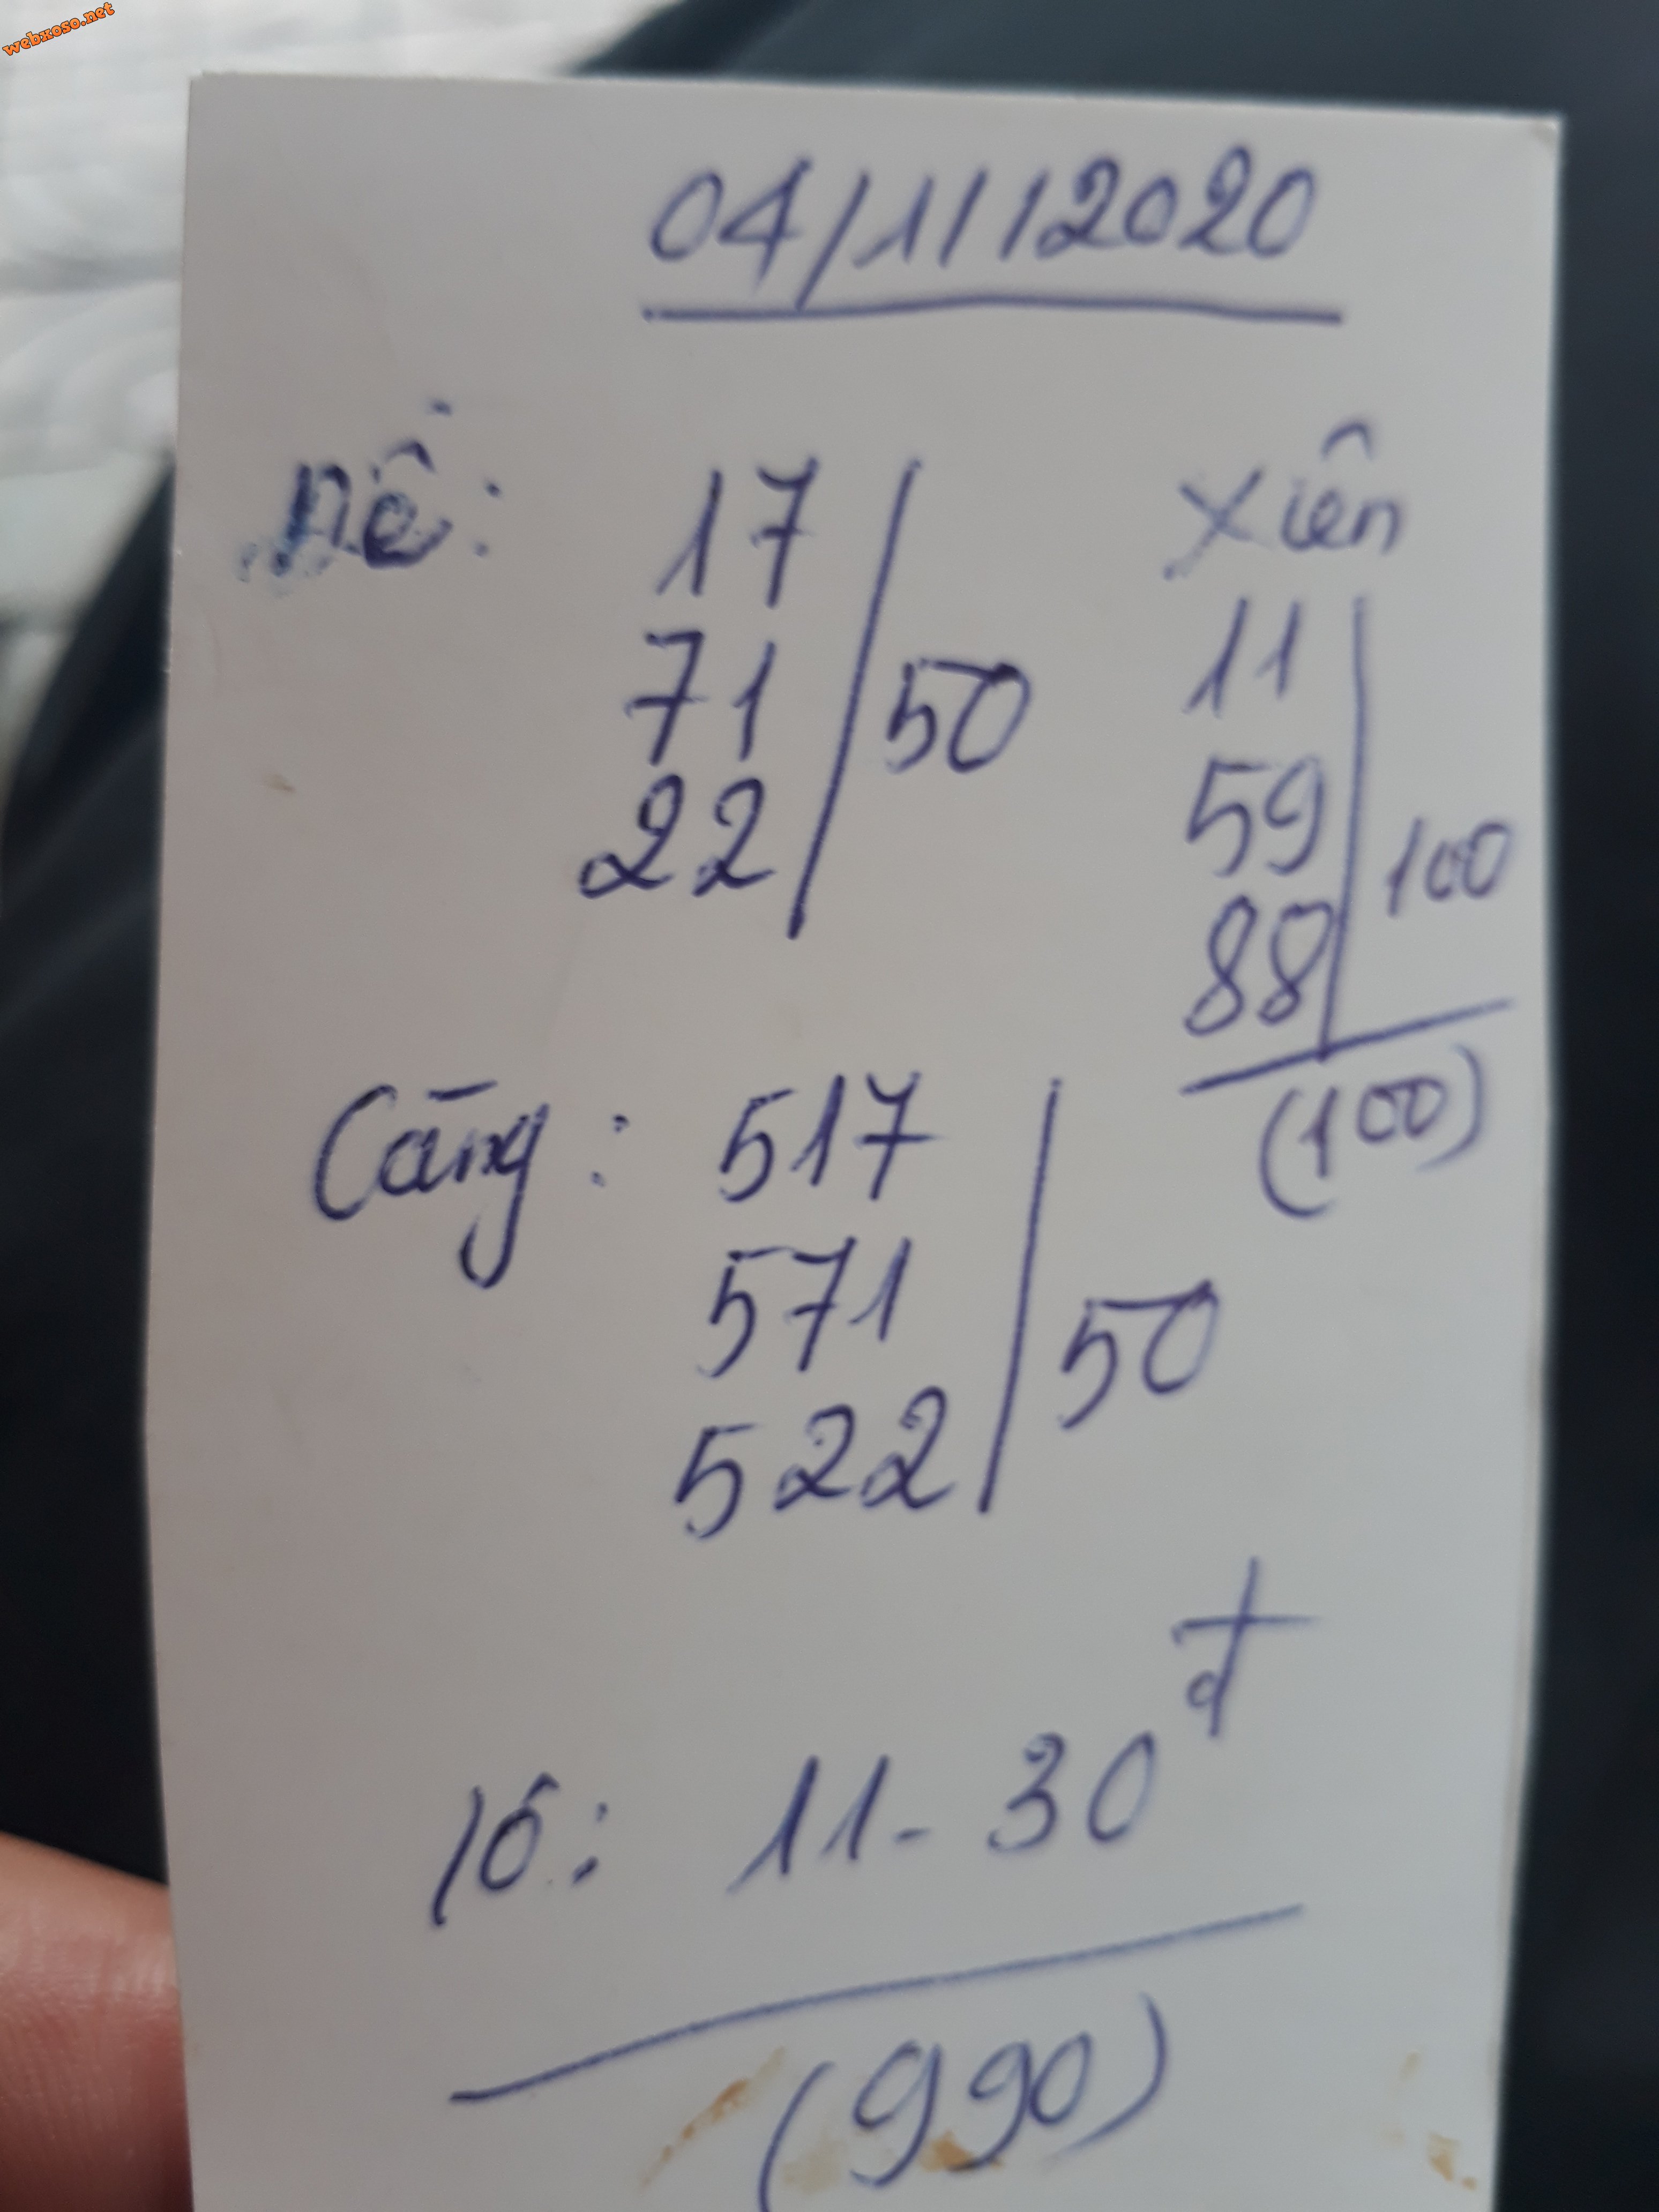 webxoso.net
04/11/2020
17
71
22
50
Xiên
11
59
88
100
(100)
Càng: 517
571
522
50
lô: 11 - 30đ
(990)